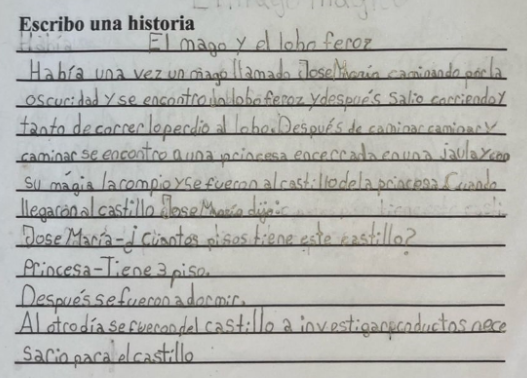 Escribo una historia
El mago y el lobo feroz
Había una vez un mago llamado Jose María caminando por la
oscuridad y se encontro un lobo feroz y después salio corriendo y
tanto de correr lo perdio al lobo. Después de caminar caminar y
caminar se encontro a una princesa encerrada en una jaula y con
su mágia la rompio y se fueron al castillo de la princesa. Cuando
llegaron al castillo Jose María dijo:
Jose María-¿Cúantos pisos tiene este castillo?
Princesa-Tiene 3 piso.
Después se fueron a dormir.
Al otro día se fueron del castillo a investigar productos nece
sario para el castillo